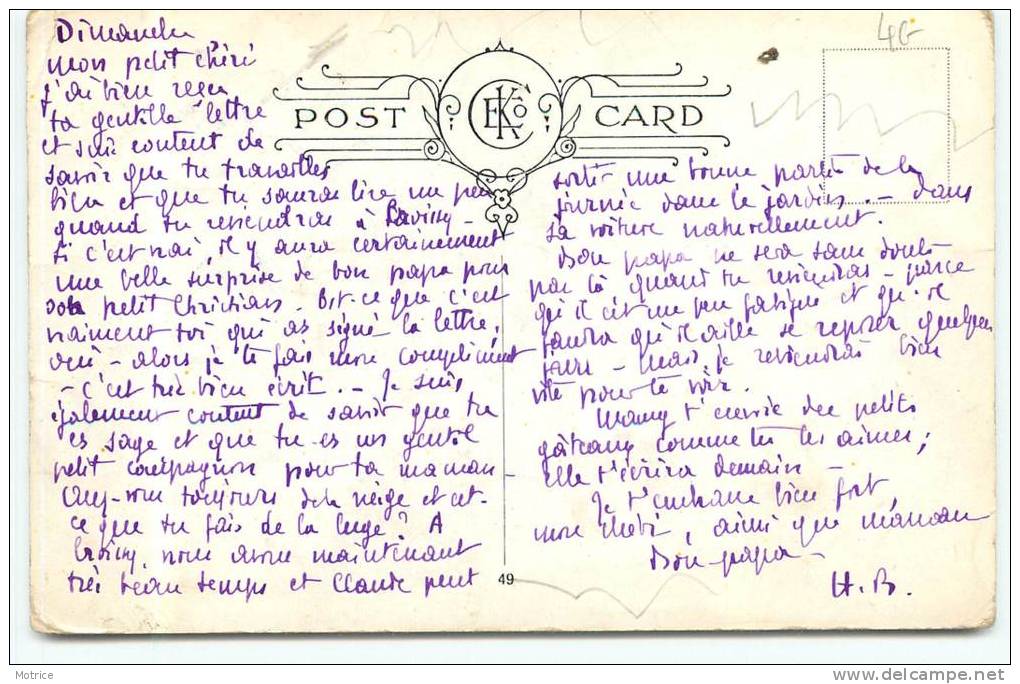 Dimanche
mon petit chéri
j'ai bien reçu
ta gentille lettre
et suis content de
savoir que tu travailles
bien et que tu sauras lire un peu
quand tu reviendras à Croissy -
Si c'est vrai, il y aura certainement
une belle surprise de bon papa pour
son petit Christian. Est-ce que c'est
vraiment toi qui as signé la lettre,
oui - alors je te fais mon compliment
- c'est très bien écrit. - Je suis
également content de savoir que tu
es sage et que tu es un gentil
petit compagnon pour ta maman -
Avez-vous toujours de la neige et est-
ce que tu fais de la luge? A
Croissy, nous avons maintenant
très beau temps et Claude peut
POST CARD
EKCo
49
4G
sortir une bonne partie de la
journée dans le jardin. - dans
sa voiture naturellement.
Bon papa ne sera sans doute
pas là quand tu reviendras - parce
qu'il est un peu fatigué et qu'il
faudra qu'il aille se reposer quelques
jours - mais je reviendrai bien
vite pour te voir.
Mamy t'envoie des petits
gâteaux comme tu les aimes;
elle t'écrira demain -
Je t'embrasse bien fort,
mon chéri, ainsi que maman
Bon-papa -
H. B.
Motrice
delcampe.net